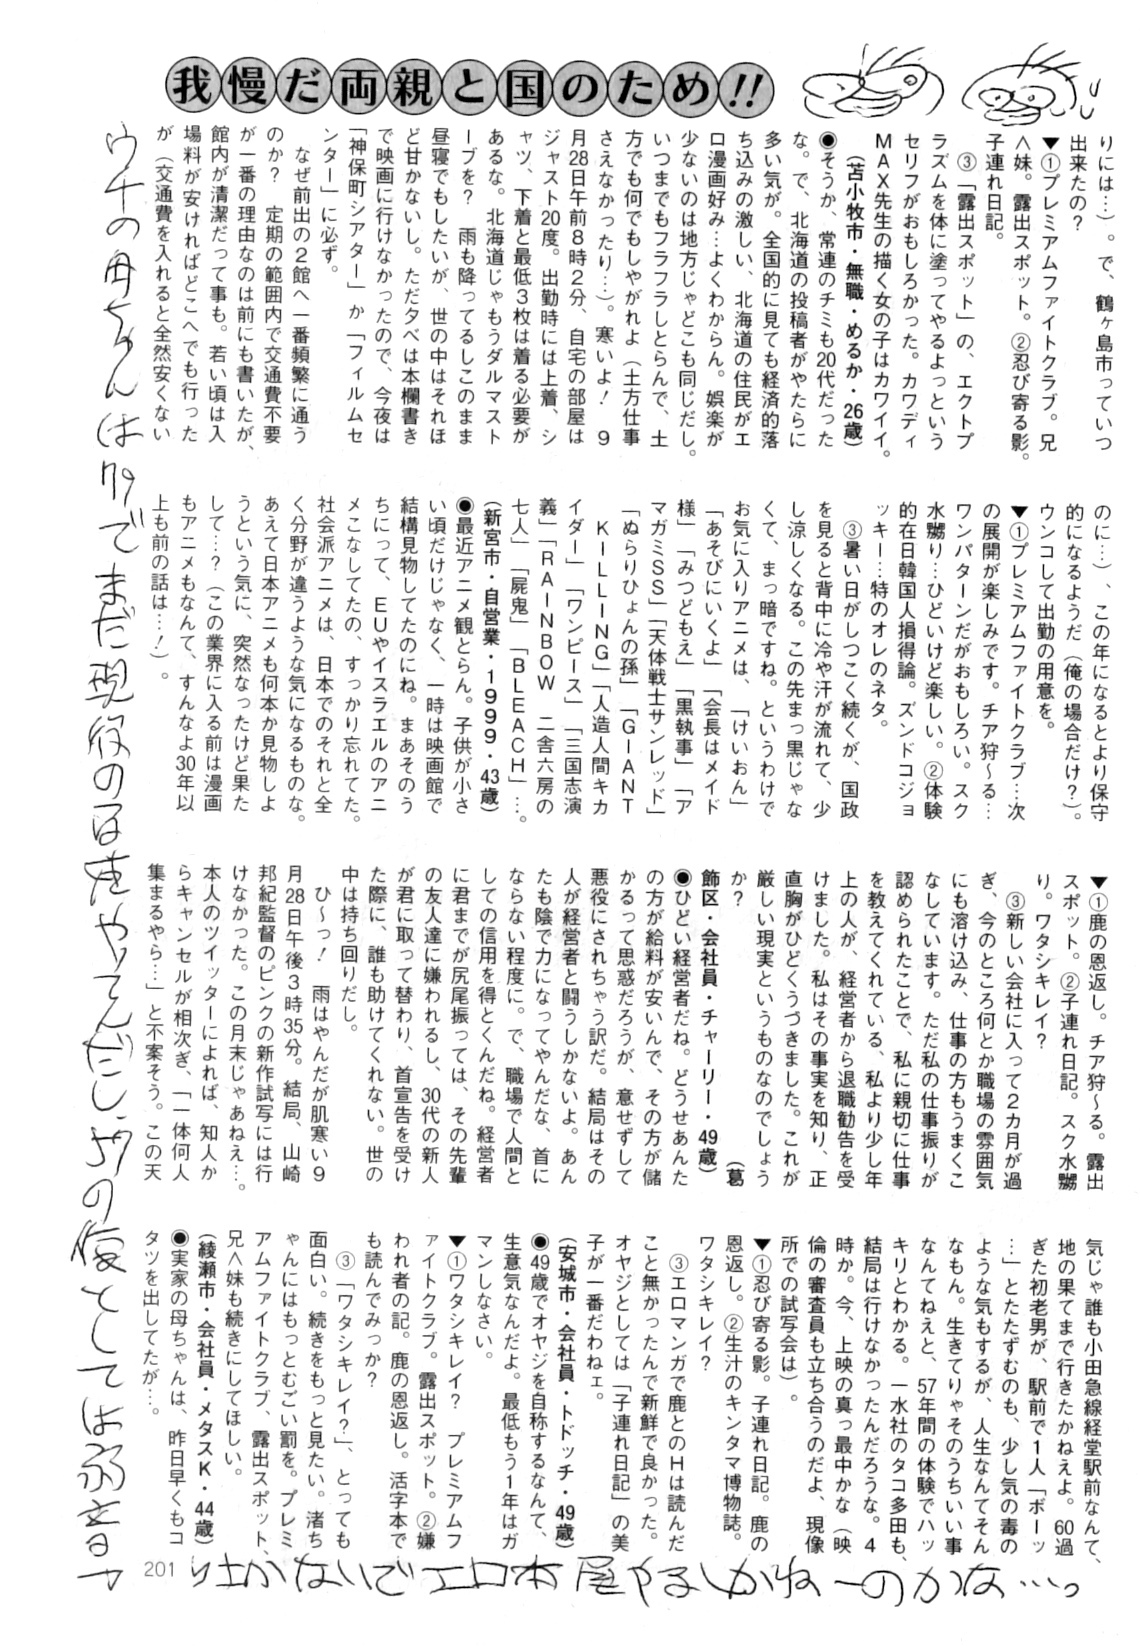 我慢だ両親と国のため!!
りには…)。で、鶴ヶ島市っていつ
出来たの？
▼①プレミアムファイトクラブ。兄
＜妹。露出スポット。②忍び寄る影。
子連れ日記。
③「露出スポット」の、エクトプ
ラズムを体に塗ってやるよっという
セリフがおもしろかった。カワディ
ＭＡＸ先生の描く女の子はカワイイ。
（苫小牧市・無職・めるか・26歳）
◉そうか、常連のチミも20代だった
な。で、北海道の投稿者がやたらに
多い気が。全国的に見ても経済的落
ち込みの激しい、北海道の住民がエ
ロ漫画好み…よくわからん。娯楽が
少ないのは地方じゃどこも同じだし。
いつまでもフラフラしとらんで、土
方でも何でもしやがれよ（土方仕事
さえなかったり…）。寒いよ！　９
月28日午前８時２分、自宅の部屋は
ジャスト20度。出勤時には上着、シ
ャツ、下着と最低３枚は着る必要が
あるな。北海道じゃもうダルマスト
ーブを？　雨も降ってるしこのまま
昼寝でもしたいが、世の中はそれほ
ど甘かないし。ただ夕べは本欄書き
で映画に行けなかったので、今夜は
「神保町シアター」か「フィルムセ
ンター」に必ず。
なぜ前出の２館へ一番頻繁に通う
のか？　定期の範囲内で交通費不要
が一番の理由なのは前にも書いたが、
館内が清潔だって事も。若い頃は入
場料が安ければどこへでも行った
が（交通費を入れると全然安くない
のに…）、この年になるとより保守
的になるようだ（俺の場合だけ？）。
ウンコして出勤の用意を。
▼①プレミアムファイトクラブ…次
の展開が楽しみです。チア狩～る…
ワンパターンだがおもしろい。スク
水嬲り…ひどいけど楽しい。②体験
的在日韓国人損得論。ズンドコジョ
ッキー…特のオレのネタ。
③暑い日がしつこく続くが、国政
を見ると背中に冷や汗が流れて、少
し涼しくなる。この先まっ黒じゃな
くて、まっ暗ですね。というわけで
お気に入りアニメは、「けいおん」
「あそびにいくよ」「会長はメイド
様」「みつどもえ」「黒執事」「ア
マガミＳＳ」「天体戦士サンレッド」
「ぬらりひょんの孫」「ＧＩＡＮＴ
ＫＩＬＬＩＮＧ」「人造人間キカ
イダー」「ワンピース」「三国志演
義」「ＲＡＩＮＢＯＷ　二舎六房の
七人」「屍鬼」「ＢＬＥＡＣＨ」…。
（新宮市・自営業・１９９９・43歳）
◉最近アニメ観とらん。子供が小さ
い頃だけじゃなく、一時は映画館で
結構見物してたのにね。まあそのう
ちにって、ＥＵやイスラエルのアニ
メこなしてたの、すっかり忘れてた。
社会派アニメは、日本でのそれと全
く分野が違うような気になるものな。
あえて日本アニメも何本か見物しよ
うという気に、突然なったけど果た
して…？（この業界に入る前は漫画
もアニメもなんて、すんなよ30年以
上も前の話は…！）。
▼①鹿の恩返し。チア狩～る。露出
スポット。②子連れ日記。スク水嬲
り。ワタシキレイ？
③新しい会社に入って２カ月が過
ぎ、今のところ何とか職場の雰囲気
にも溶け込み、仕事の方もうまくこ
なしています。ただ私の仕事振りが
認められたことで、私に親切に仕事
を教えてくれている、私より少し年
上の人が、経営者から退職勧告を受
けました。私はその事実を知り、正
直胸がひどくうづきました。これが
厳しい現実というものなのでしょう
か？　（葛
飾区・会社員・チャーリー・49歳）
◉ひどい経営者だね。どうせあんた
の方が給料が安いんで、その方が儲
かるって思惑だろうが、意せずして
悪役にされちゃう訳だ。結局はその
人が経営者と闘うしかないよ。あん
たも陰で力になってやんだな、首に
ならない程度に。で、職場で人間と
しての信用を得とくんだね。経営者
に君までが尻尾振っては、その先輩
の友人達に嫌われるし、30代の新人
が君に取って替わり、首宣告を受け
た際に、誰も助けてくれない。世の
中は持ち回りだし。
ひ～っ！　雨はやんだが肌寒い９
月28日午後３時35分。結局、山崎
邦紀監督のピンクの新作試写には行
けなかった。この月末じゃあねえ…。
本人のツイッターによれば、知人か
らキャンセルが相次ぎ、「一体何人
集まるやら…」と不案そう。この天
気じゃ誰も小田急線経堂駅前なんて、
地の果てまで行きたかねえよ。60過
ぎた初老男が、駅前で１人「ボーッ
…」とたたずむのも、少し気の毒の
ような気もするが、人生なんてそん
なもん。生きてりゃそのうちいい事
なんてねえと、57年間の体験でハッ
キリとわかる。一水社のタコ多田も、
結局は行けなかったんだろうな。４
時か。今、上映の真っ最中かな（映
倫の審査員も立ち合うのだよ、現像
所での試写会は）。
▼①忍び寄る影。子連れ日記。鹿の
恩返し。②生汁のキンタマ博物誌。
ワタシキレイ？
③エロマンガで鹿とのＨは読んだ
こと無かったんで新鮮で良かった。
オヤジとしては「子連れ日記」の美
子が一番だわねェ。
（安城市・会社員・トドッチ・49歳）
◉49歳でオヤジを自称するなんて、
生意気なんだよ。最低もう１年はガ
マンしなさい。
▼①ワタシキレイ？　プレミアムフ
ァイトクラブ。露出スポット。②嫌
われ者の記。鹿の恩返し。活字本で
も読んでみっか？
③「ワタシキレイ？」、とっても
面白い。続きをもっと見たい。渚ち
ゃんにはもっとむごい罰を。プレミ
アムファイトクラブ、露出スポット、
兄＜妹も続きにしてほしい。
（綾瀬市・会社員・メタスＫ・44歳）
◉実家の母ちゃんは、昨日早くもコ
タツを出してたが…。
ウチの母ちゃんは79でまだ現役の百姓やってんだし、57の倅としては弱音
は吐かないでエロ本屋やるしかねーのかな…っ
201